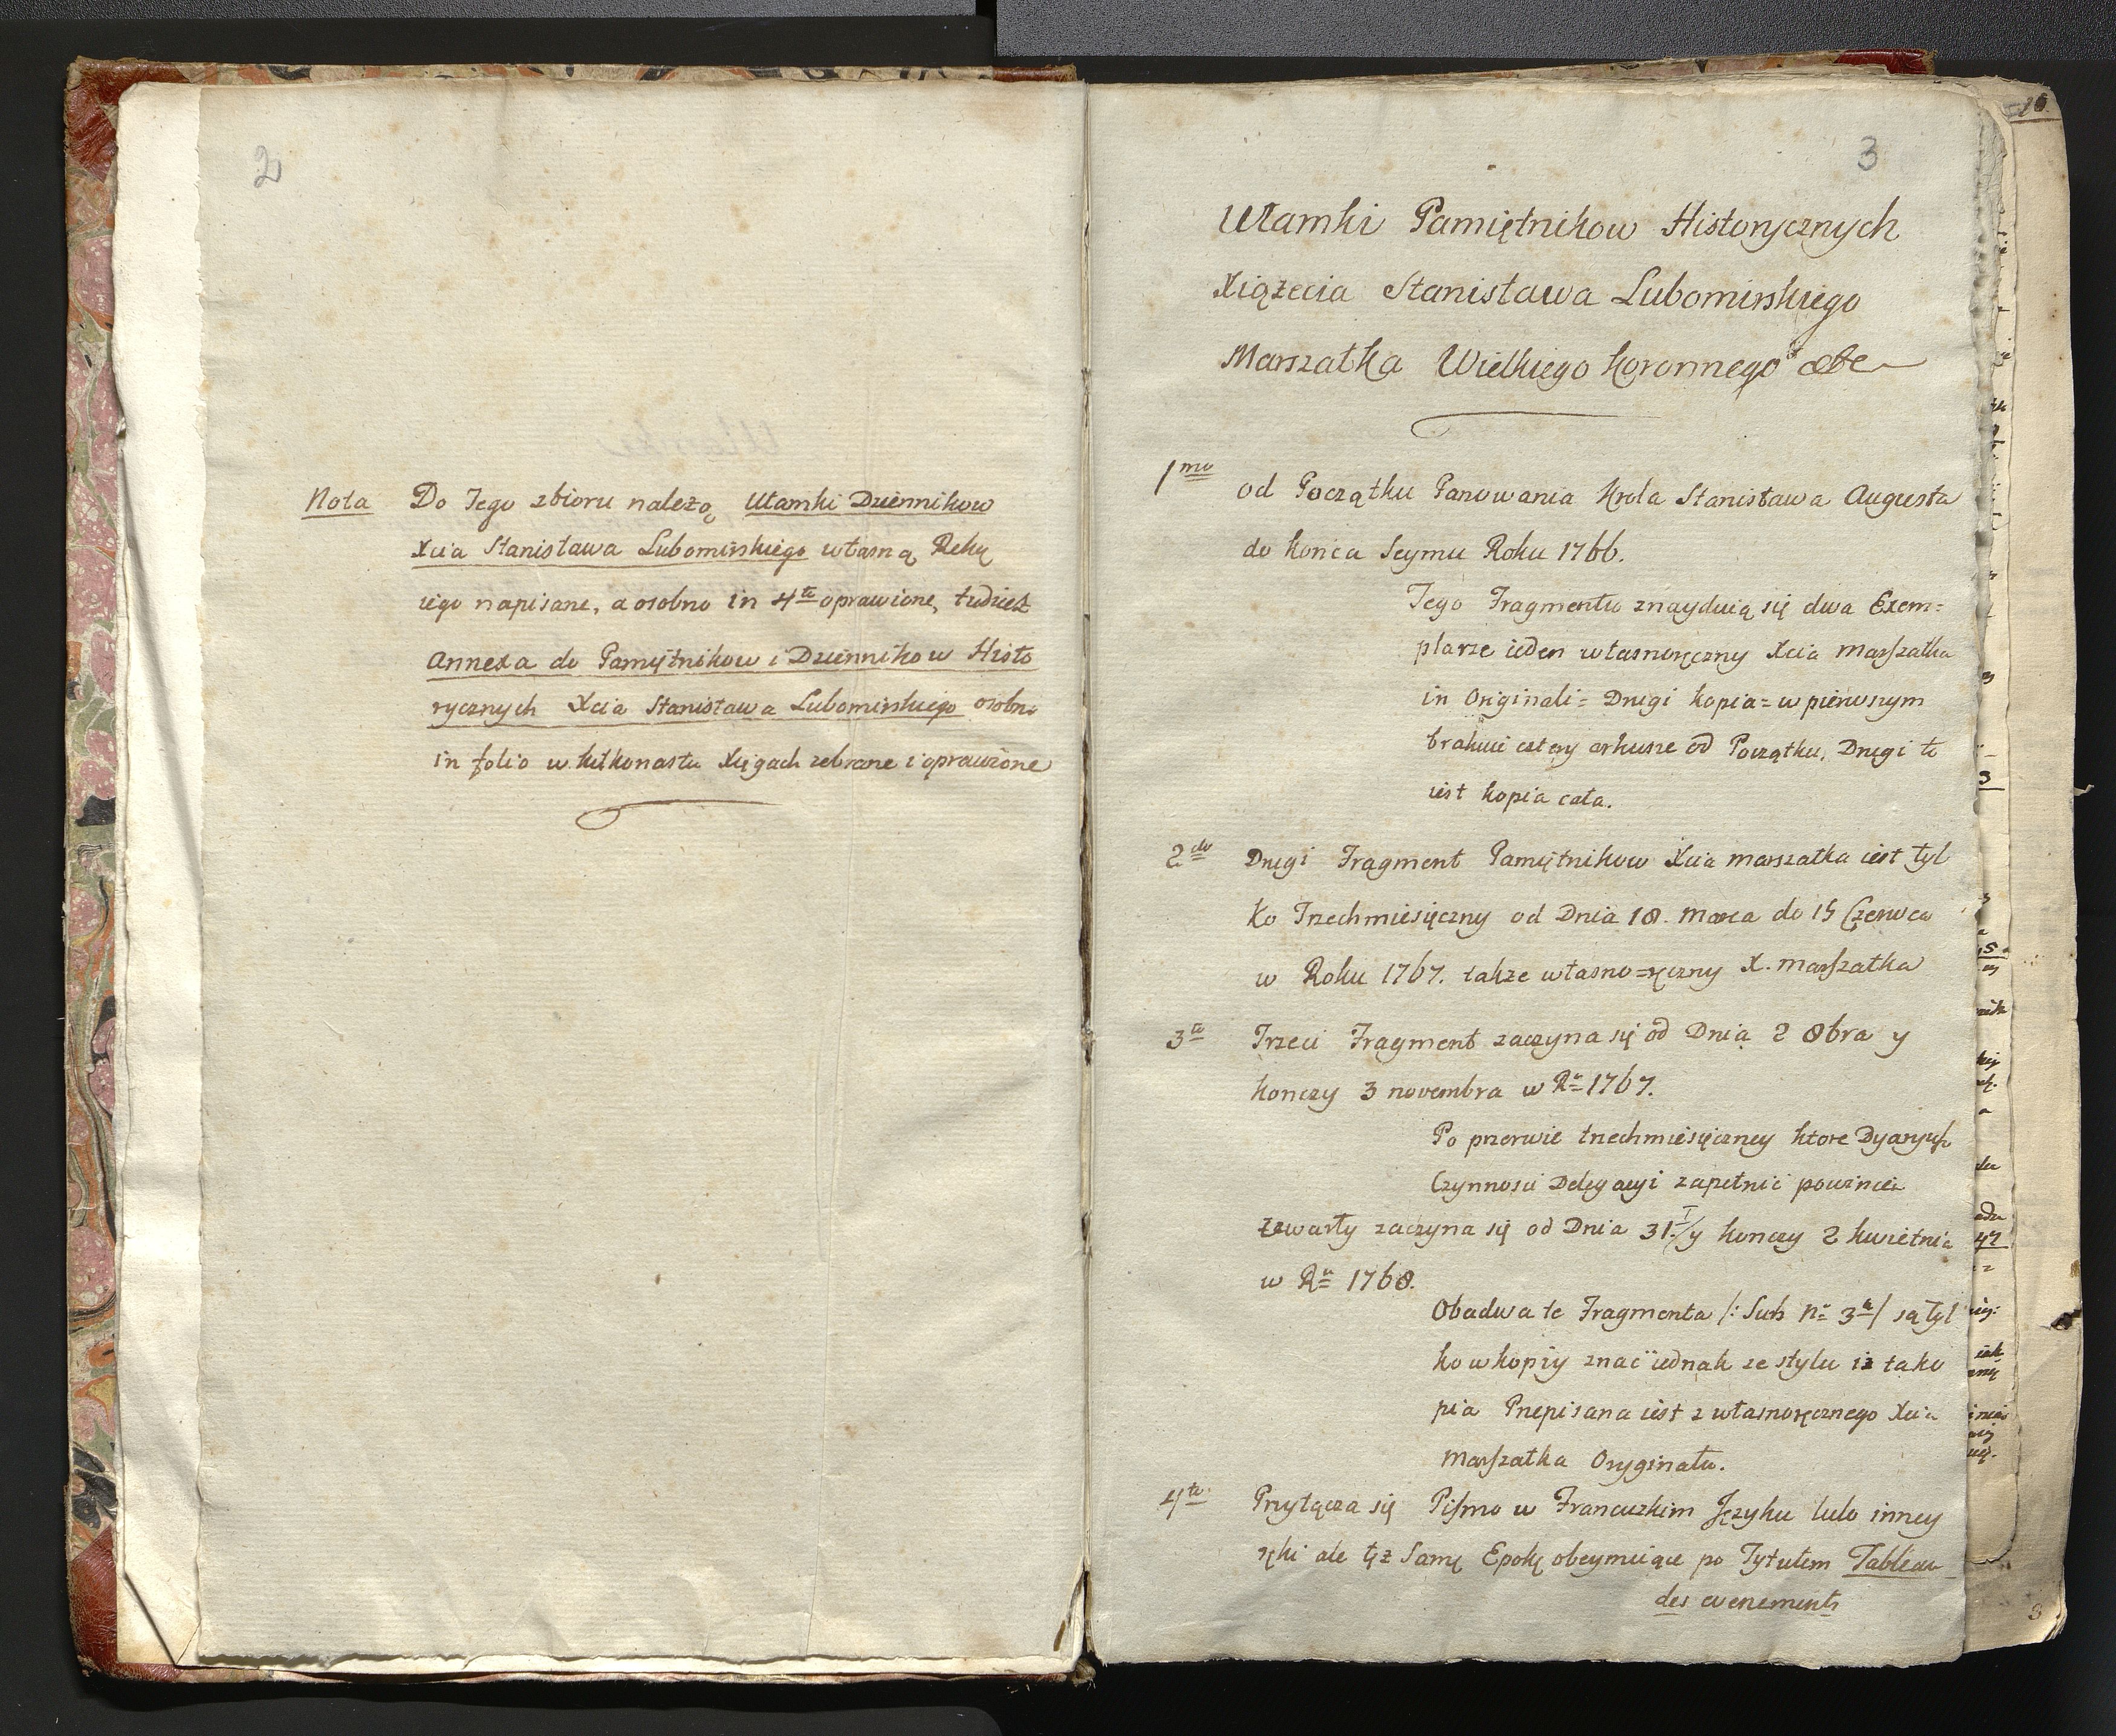 2
Nota Do Tego zbioru należą Ułamki Dziennikow
Xcia Stanisława Lubomirskiego własną Ręką
iego napisane, a osobno in 4to oprawione, tudzież
Annexa do Pamiętnikow i Dziennikow Histo
rycznych Xcia Stanisława Lubomirskiego osobno
in folio w kilkonastu Xięgach zebrane i oprawione
3
Ułamki Pamiętnikow Historycznych
Xiążecia Stanisława Lubomirskiego
Marszałka Wielkiego Koronnego
1mo od Początku Panowania Krola Stanisława Augusta
do Konca Seymu Roku 1766.
Tego Fragmentu znayduią się dwa Exem=
plarze ieden własnoręczny Xcia Marszałka
in Originali = Drugi kopia = w pierwszym
brakuie cztery arkusze od Początku, Drugi to
iest kopia cała.
2do Drugi Fragment Pamiętnikow Xcia Marszałka iest tyl
ko Trzechmiesięczny od Dnia 18. Marca do 15 Czerwca
w Roku 1767. także własno=ręczny X. Marszałka
3tio Trzeci Fragment zaczyna się od Dnia 2 8bra y
konczy 3 novembra w Ru 1767.
Po przerwie trzechmiesięczney ktore Dyaryusz
Czynnosci Delegacyi zapełnić powinien
czwarty zaczyna się od Dnia 31. I/ y konczy 2 kwietnia
w Ru 1768.
Obadwa te Fragmenta /: Sub No 3o / są tyl
ko w kopiy znać iednak ze stylu iż ta ko
pia Przepisana iest z własnoręcznego Xcia
Marszałka Oryginału.
4to Przyłącza się Pismo w Francuzkim Języku lubo inney
ręki ale tęż Samę Epokę obeymuiące po Tytułem Tableau
des evenements